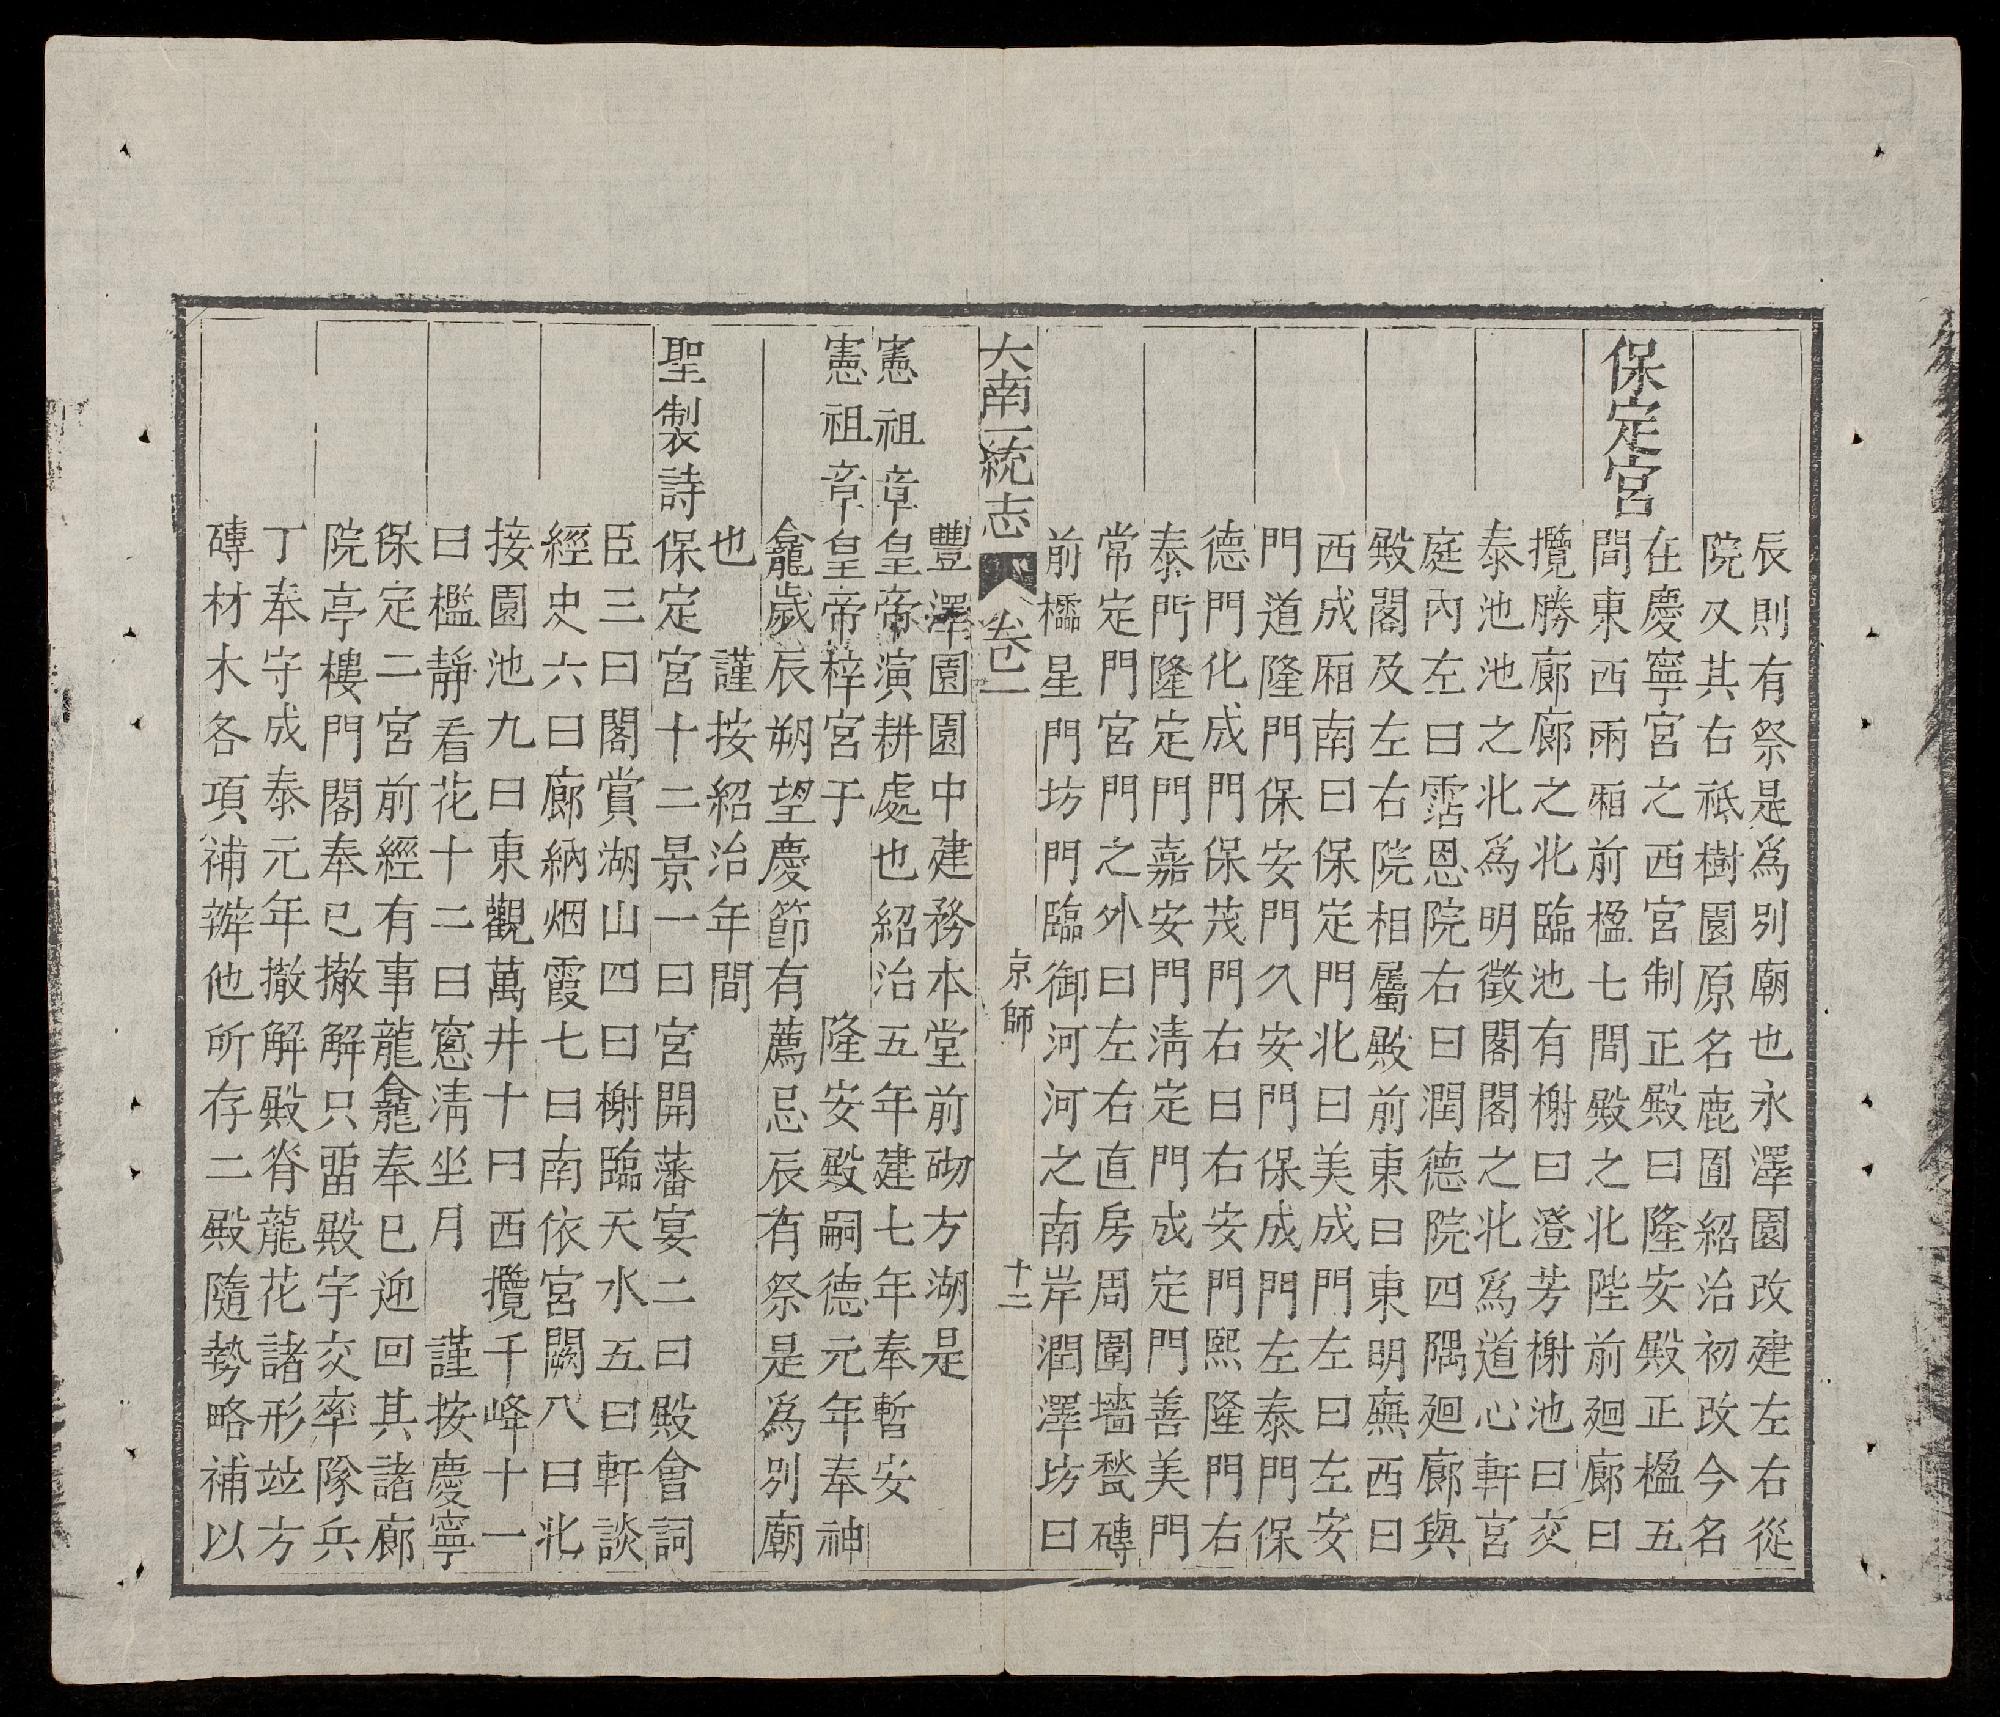 辰則有祭是爲別廟也永澤園改建左右從
院又其右祗樹園原名鹿囿紹治初改今名
保定宮
在慶寧宮之西宮制正殿曰隆安殿正楹五
間東西兩廂前楹七間殿之北陛前廻廊曰
攬勝廊廊之北臨池有榭曰澄芳榭池曰交
泰池池之北爲明徵閣閣之北爲道心軒宮
庭內左曰霑恩院右曰潤德院四隅廻廊與
殿閣及左右院相屬殿前東曰東明廡西曰
西成廂南曰保定門北曰美成門左曰左安
門道隆門保安門久安門保成門左泰門保
德門化成門保茂門右曰右安門熙隆門右
泰門隆定門嘉安門淸定門成定門善美門
常定門宮門之外曰左右直房周圍墻甃磚
前櫺星門坊門臨御河河之南岸潤澤坊曰
大南一統志 卷一 京師 十二
豐澤園園中建務本堂前砌方湖是
憲祖章皇帝演耕處也紹治五年建七年奉暫安
憲祖章皇帝梓宮于 隆安殿嗣德元年奉神
龕歲辰朔望慶節有薦忌辰有祭是爲別廟
也 謹按紹治年間
聖製詩保定宮十二景一曰宮開藩宴二曰殿會詞
臣三曰閣賞湖山四曰榭臨天水五曰軒談
經史六曰廊納烟霞七曰南依宮闕八曰北
接園池九曰東觀萬井十曰西攬千峰十一
曰檻靜看花十二曰窻淸坐月 謹按慶寧
保定二宮前經有事龍龕奉巳迎回其諸廊
院亭樓門閣奉巳撤解只畱殿宇交率隊兵
丁奉守成泰元年撤解殿脊龍花諸形竝方
磚材木各項補辦他所存二殿隨勢略補以